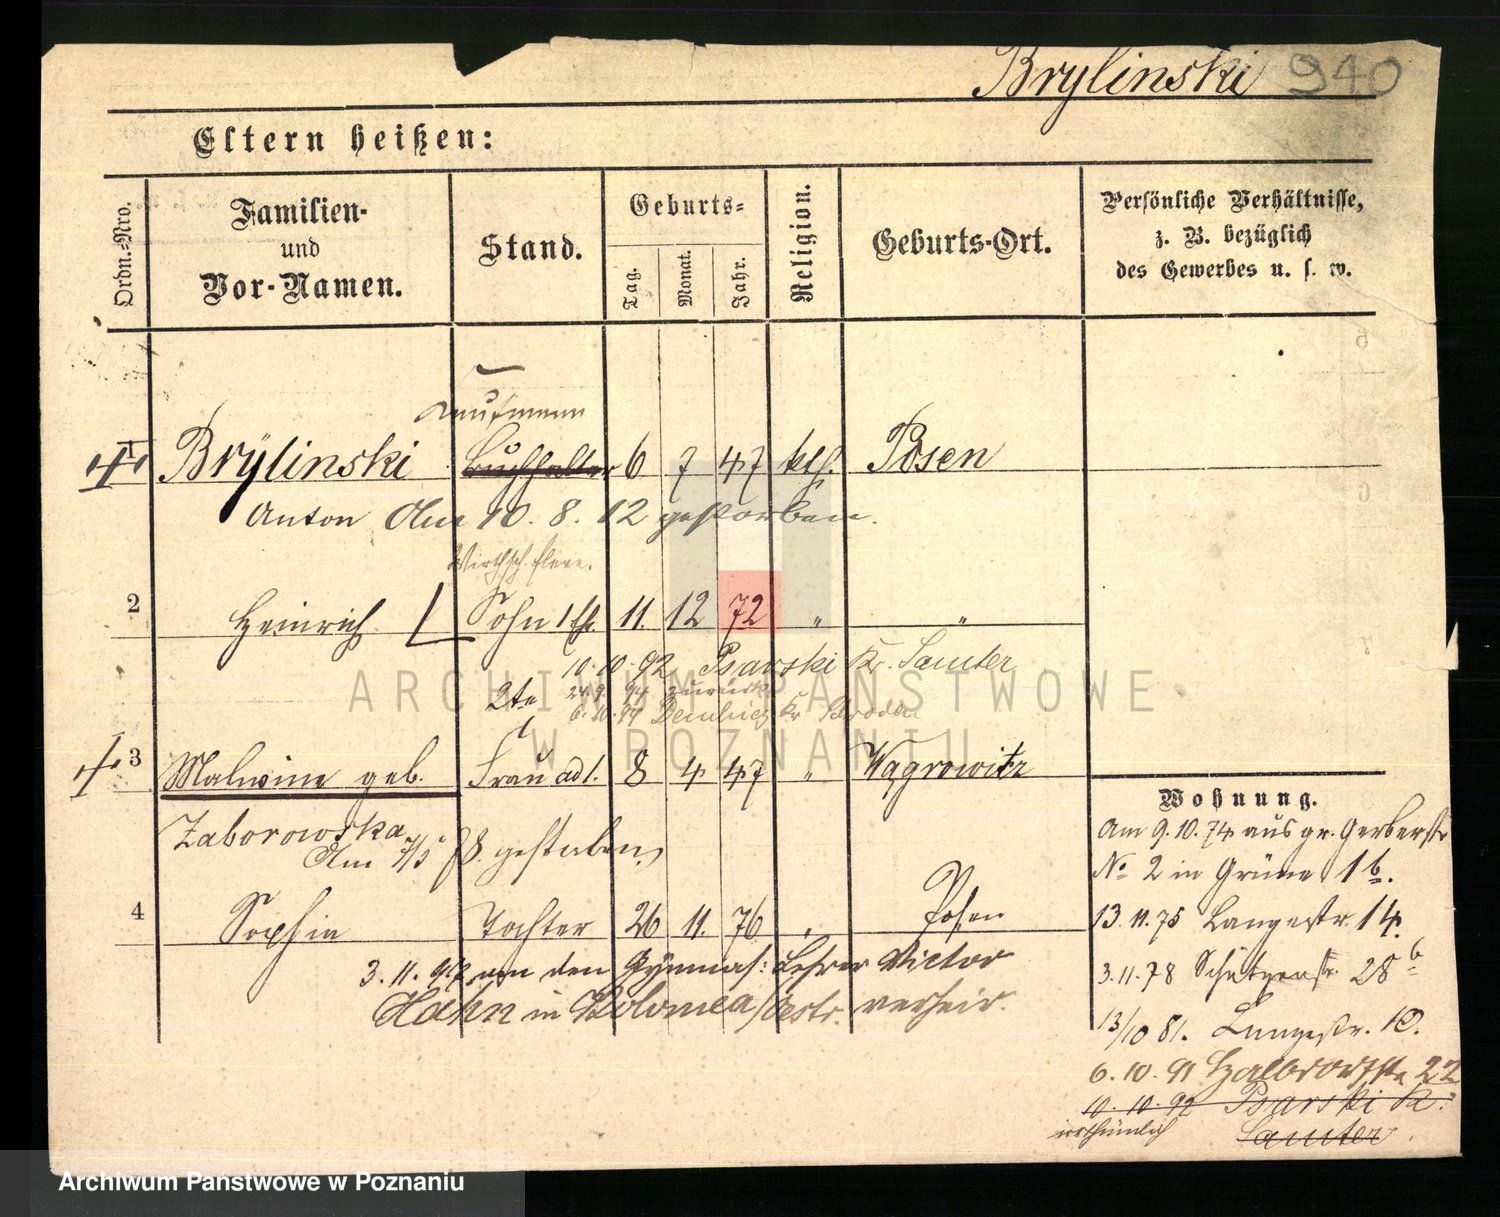 Brylinski 940
Eltern heißen:
Ordn.-Nro.
Familien- und Vor-Namen.
Stand.
Geburts-
Tag.
Monat.
Jahr.
Religion.
Geburts-Ort.
Persönliche Verhältnisse,
z. B. bezüglich
des Gewerbes u. s. w.
Kaufmann
1 Brÿlinski Buchhalter 6 7 47 kth. Posen
Anton Am 10. 8. 12 gestorben.
Wirthsch. Eleve.
2 Heinrich Sohn 1 Eh. 11. 12 72 " "
10.10.92 Psarski Kr. Samter
2te 94 zurück
6.10.94 Kr
3 Malwine geb. Frau ad 1. 8 4 47 " Wągrowitz
Zaborowska
Am 7/5 78. gestorben.
4 Sophia Tochter 26 11. 76 " Posen
3. 11. an den Gymnas: Lehrer Victor
Hahn in Kolomea/Östr. verheir.
Wohnung.
Am 9.10.74 aus gr. Gerberstr
No 2 in Grüne 1b.
13.11.75 Langestr. 14.
3.11.78 Schützenstr. 28b
13/10 81. Langestr. 10.
6.10.91 Halbdorfstr 22
10.10.92 Psarski Kr.
irrthümlich Samter
ARCHIWUM PAŃSTWOWE
W POZNANIU
Archiwum Państwowe w Poznaniu